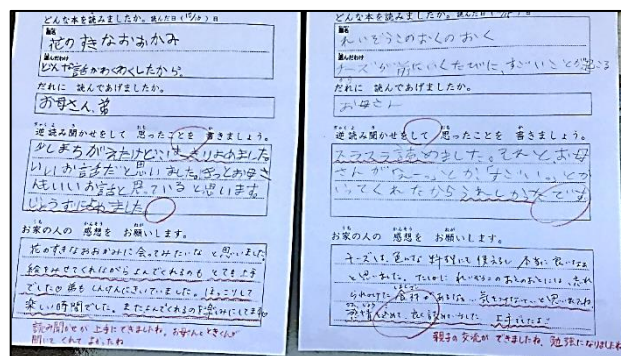 どんな本を読みましたか。読んだ日(10/ )日
題名
花のすきなおおかみ
選んだわけ
どんな話かわくわくしたから。
だれに 読んであげましたか。
お母さん、弟
逆読み聞かせをして 思ったことを 書きましょう。
少しまちがえたけど、はっきりよめました。
いいお話だと思いました。きっとお母さ
んもいいお話と思っていると思います。
じょうずによめました
お家の人の 感想を お願いします。
花のすきなおおかみに会ってみたいなと思いました。
絵をみせてくれながらよんでくれるのも とても上手
でした。弟もしんけんにきいていました。ほっこりして
楽しい時間でした。またよんでくれるのを楽しみにしてます。
読み聞かせが上手にできましたね。お母さんと
聞いてくれて よかったね
どんな本を読みましたか。読んだ日
題名
れいぞうこのおくのおく
選んだわけ
チーズが前にいくたびに、すごいことが起こる
だれに 読んであげましたか。
お母さん
逆読み聞かせをして 思ったことを 書きましょう。
スラスラ読めました。それとお母
さんが「へー。」とか「すごい。」とか
いってくれたからうれしかったです
お家の人の 感想を お願いします。
チーズは、色々な料理にも使えるし、本当に良いなぁ
と思いました。たしかに れいぞうこのおくのおくには、忘れ
られかけた食材があるなぁ…気をつけなくて…と思いましたね
感情を込めて、
上手でしたよ!
親子の交流ができましたね。勉強になりましたね